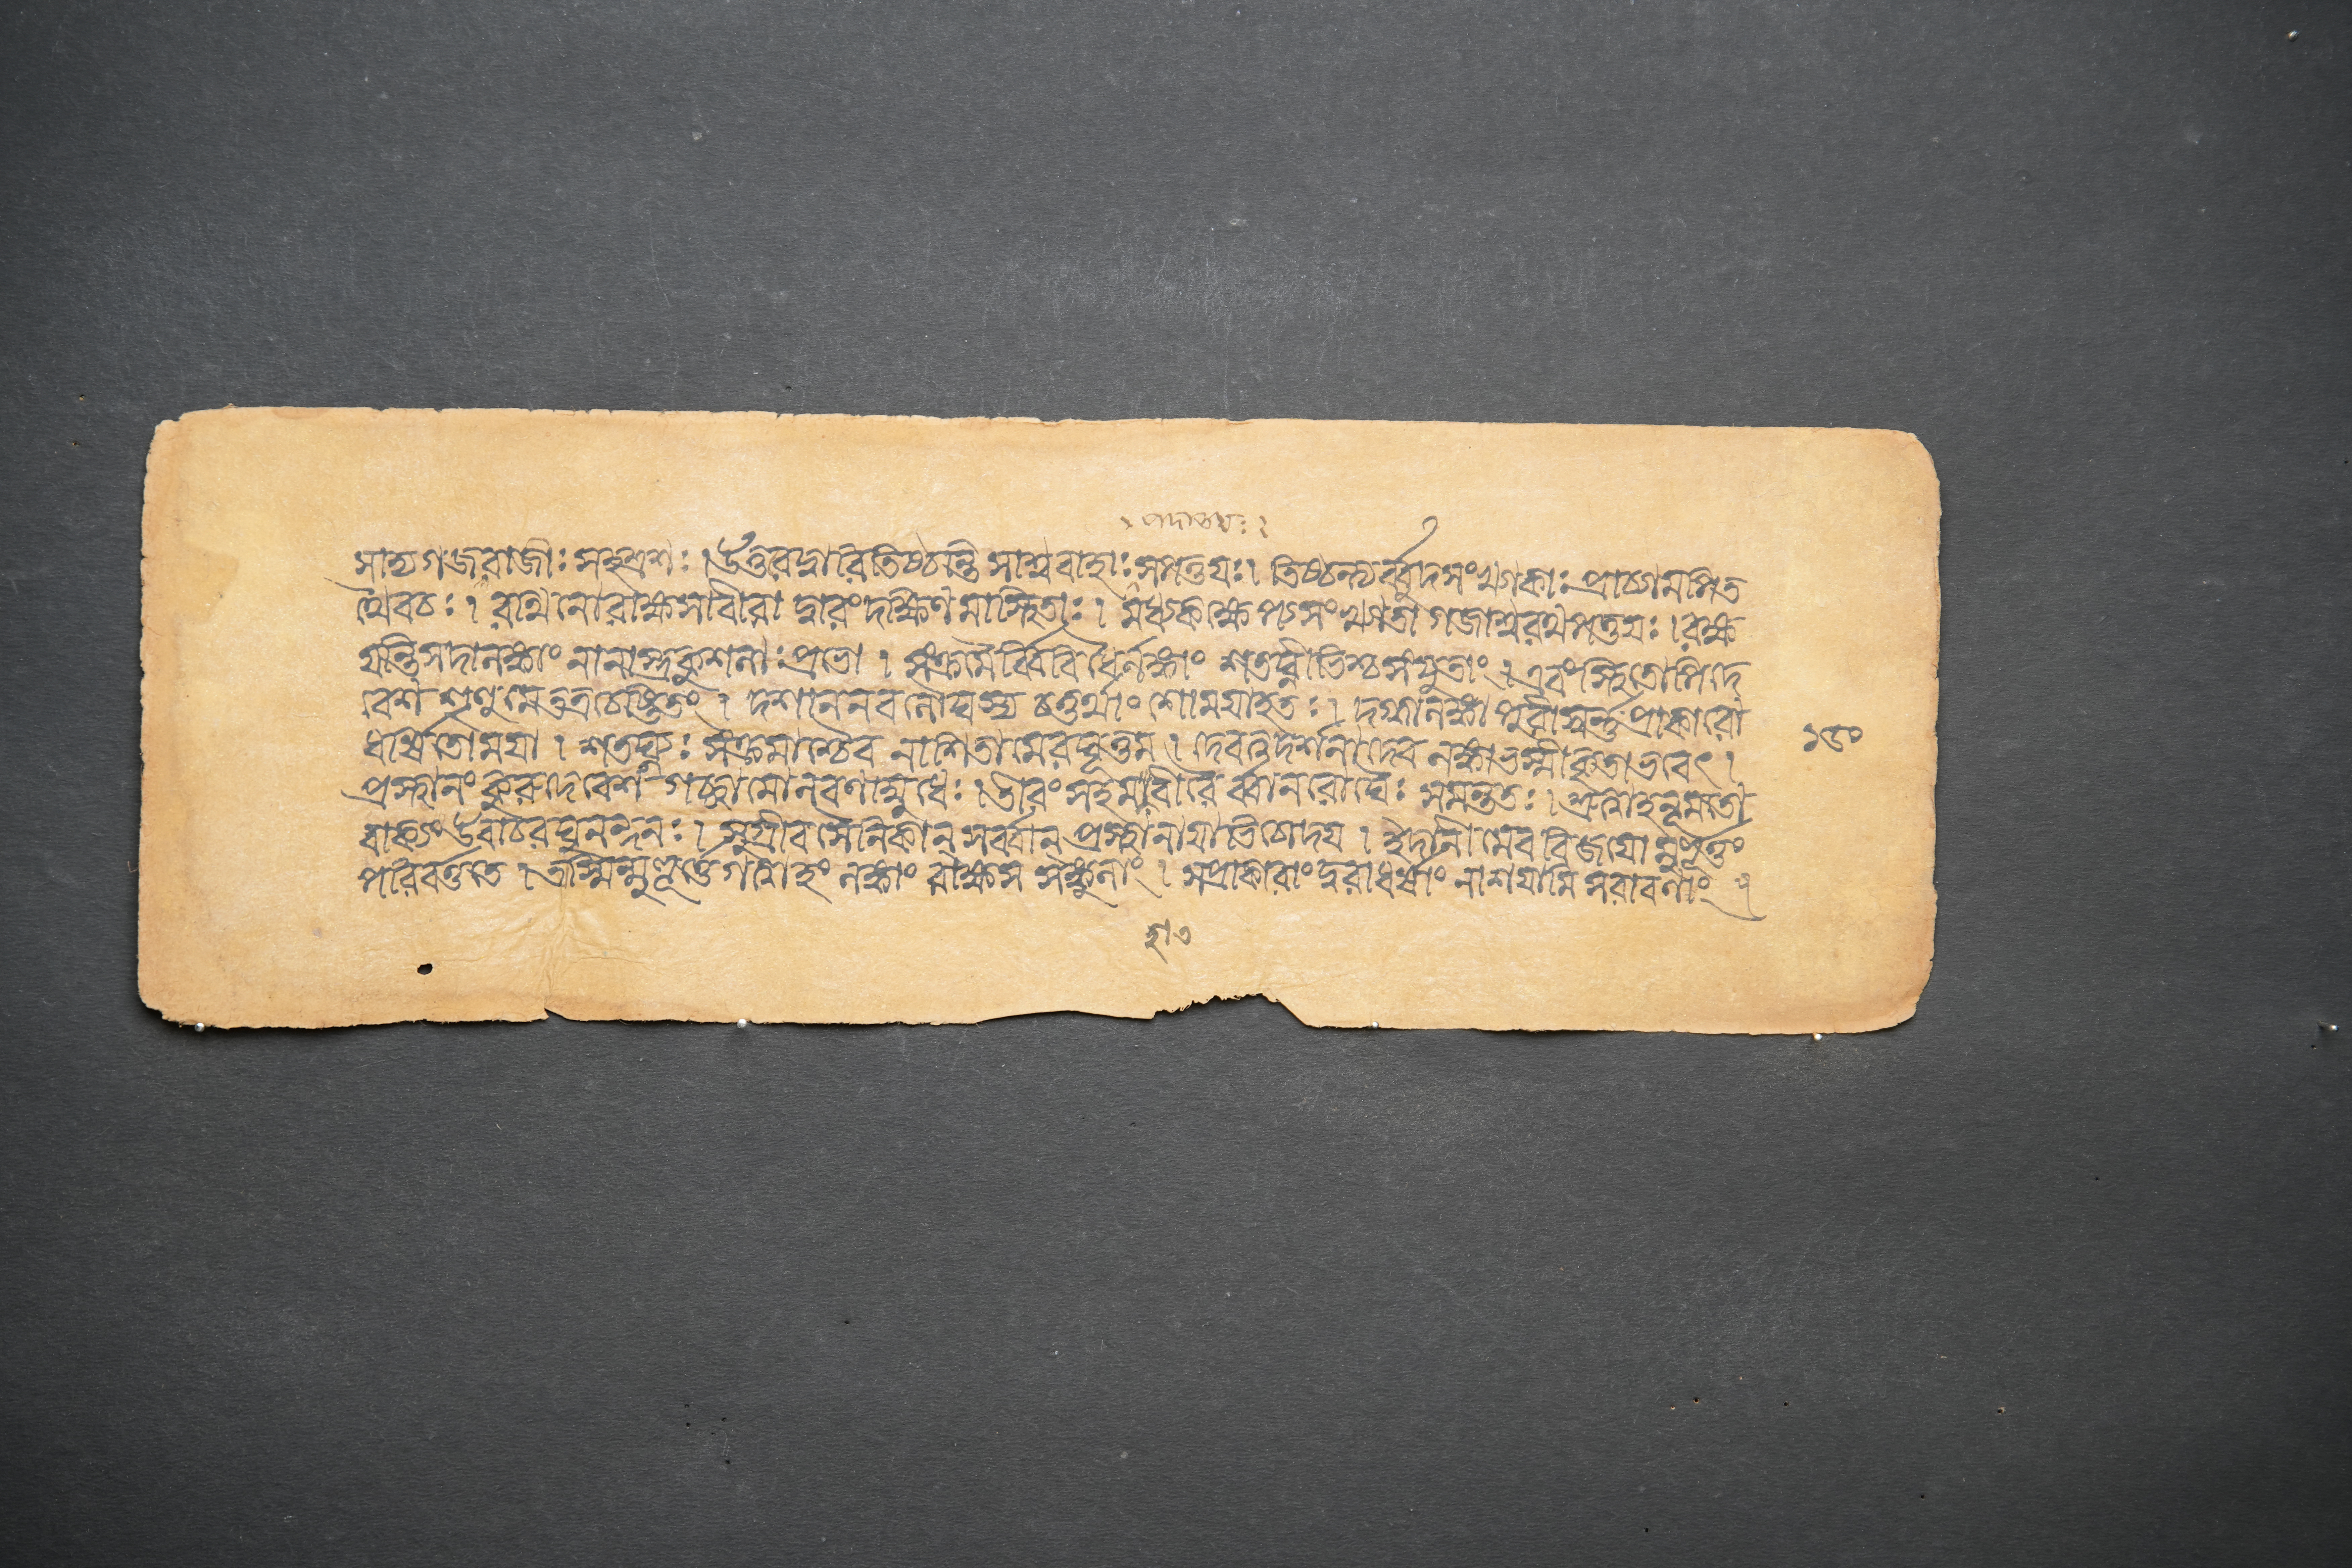 পদাতয়ঃ ২
সাশ্বগজরাজীঃ সহস্রশঃ । উত্তরদ্বারিতিষ্ঠন্তি সাশ্ববাহাঃ সপত্তয়ঃ । তিষ্ঠন্ত্যর্ব্বুদসংখ্যাকাঃ প্রাচ্যামপিত
থৈবচঃ । রথিনোরাক্ষসাবীরা দ্বারংদক্ষিণমাস্থিতাঃ । মধ্যেকক্ষেপ্যসংখ্যাতা গজাশ্বরথপত্তয়ঃ । রক্ষ
য়ন্তিসদালঙ্কাং নানাস্ত্রকুশলাঃপ্রভো । সংক্রমৈর্ব্বিবিধৈর্লঙ্কাং শতঘ্নীভিশ্চসংযুতাং । এবংস্থিতোপিদে
বেশ শৃণুমেতত্রচেষ্টিতং । দশাননবলৌঘস্য চতুর্থাংশোময়াহতঃ । দগ্ধালঙ্কা পুরীস্বর্ণপ্রাকারো
ধর্ষিতোময়া । শতঘ্ন্যঃ সংক্রমাশ্চৈব নাশিতামেরঘূত্তম । দেবত্বদ্দর্শনাদেব লঙ্কাভস্মীকৃতাভবেৎ ।
১৬০
প্রস্থানং কুরুদেবেশ গচ্ছামোলবণাম্বুধেঃ । তীরং সহমহাবীরৈর্ব্বানরৌঘৈঃ সমন্ততঃ । শ্রুত্বাহনূমতো
বাক্যং উবাচরঘুনন্দনঃ । সুগ্রীব সৈনিকান্ সর্ব্বান্ প্রস্থানায়াভিচোদয় । ইদানীমেব বিজয়ো মুহূর্ত্তং
পরিবর্ত্ততে । অস্মিন্মুহূর্ত্তে গত্বাহং লঙ্কাং রাক্ষস সঙ্কুলাং । সপ্রাকারাংদুরাধর্ষাং নাশয়ামি সরাবণাং